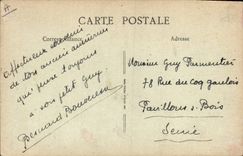 CARTE POSTALE
Correspondance
Adresse
Affectueux
de ton ancien
qui pense toujours
à son petit Guy.
Bernard
Monsieur Guy Parmentier
78 Rue du Coq Gaulois
Pavillons s/ Bois
Seine